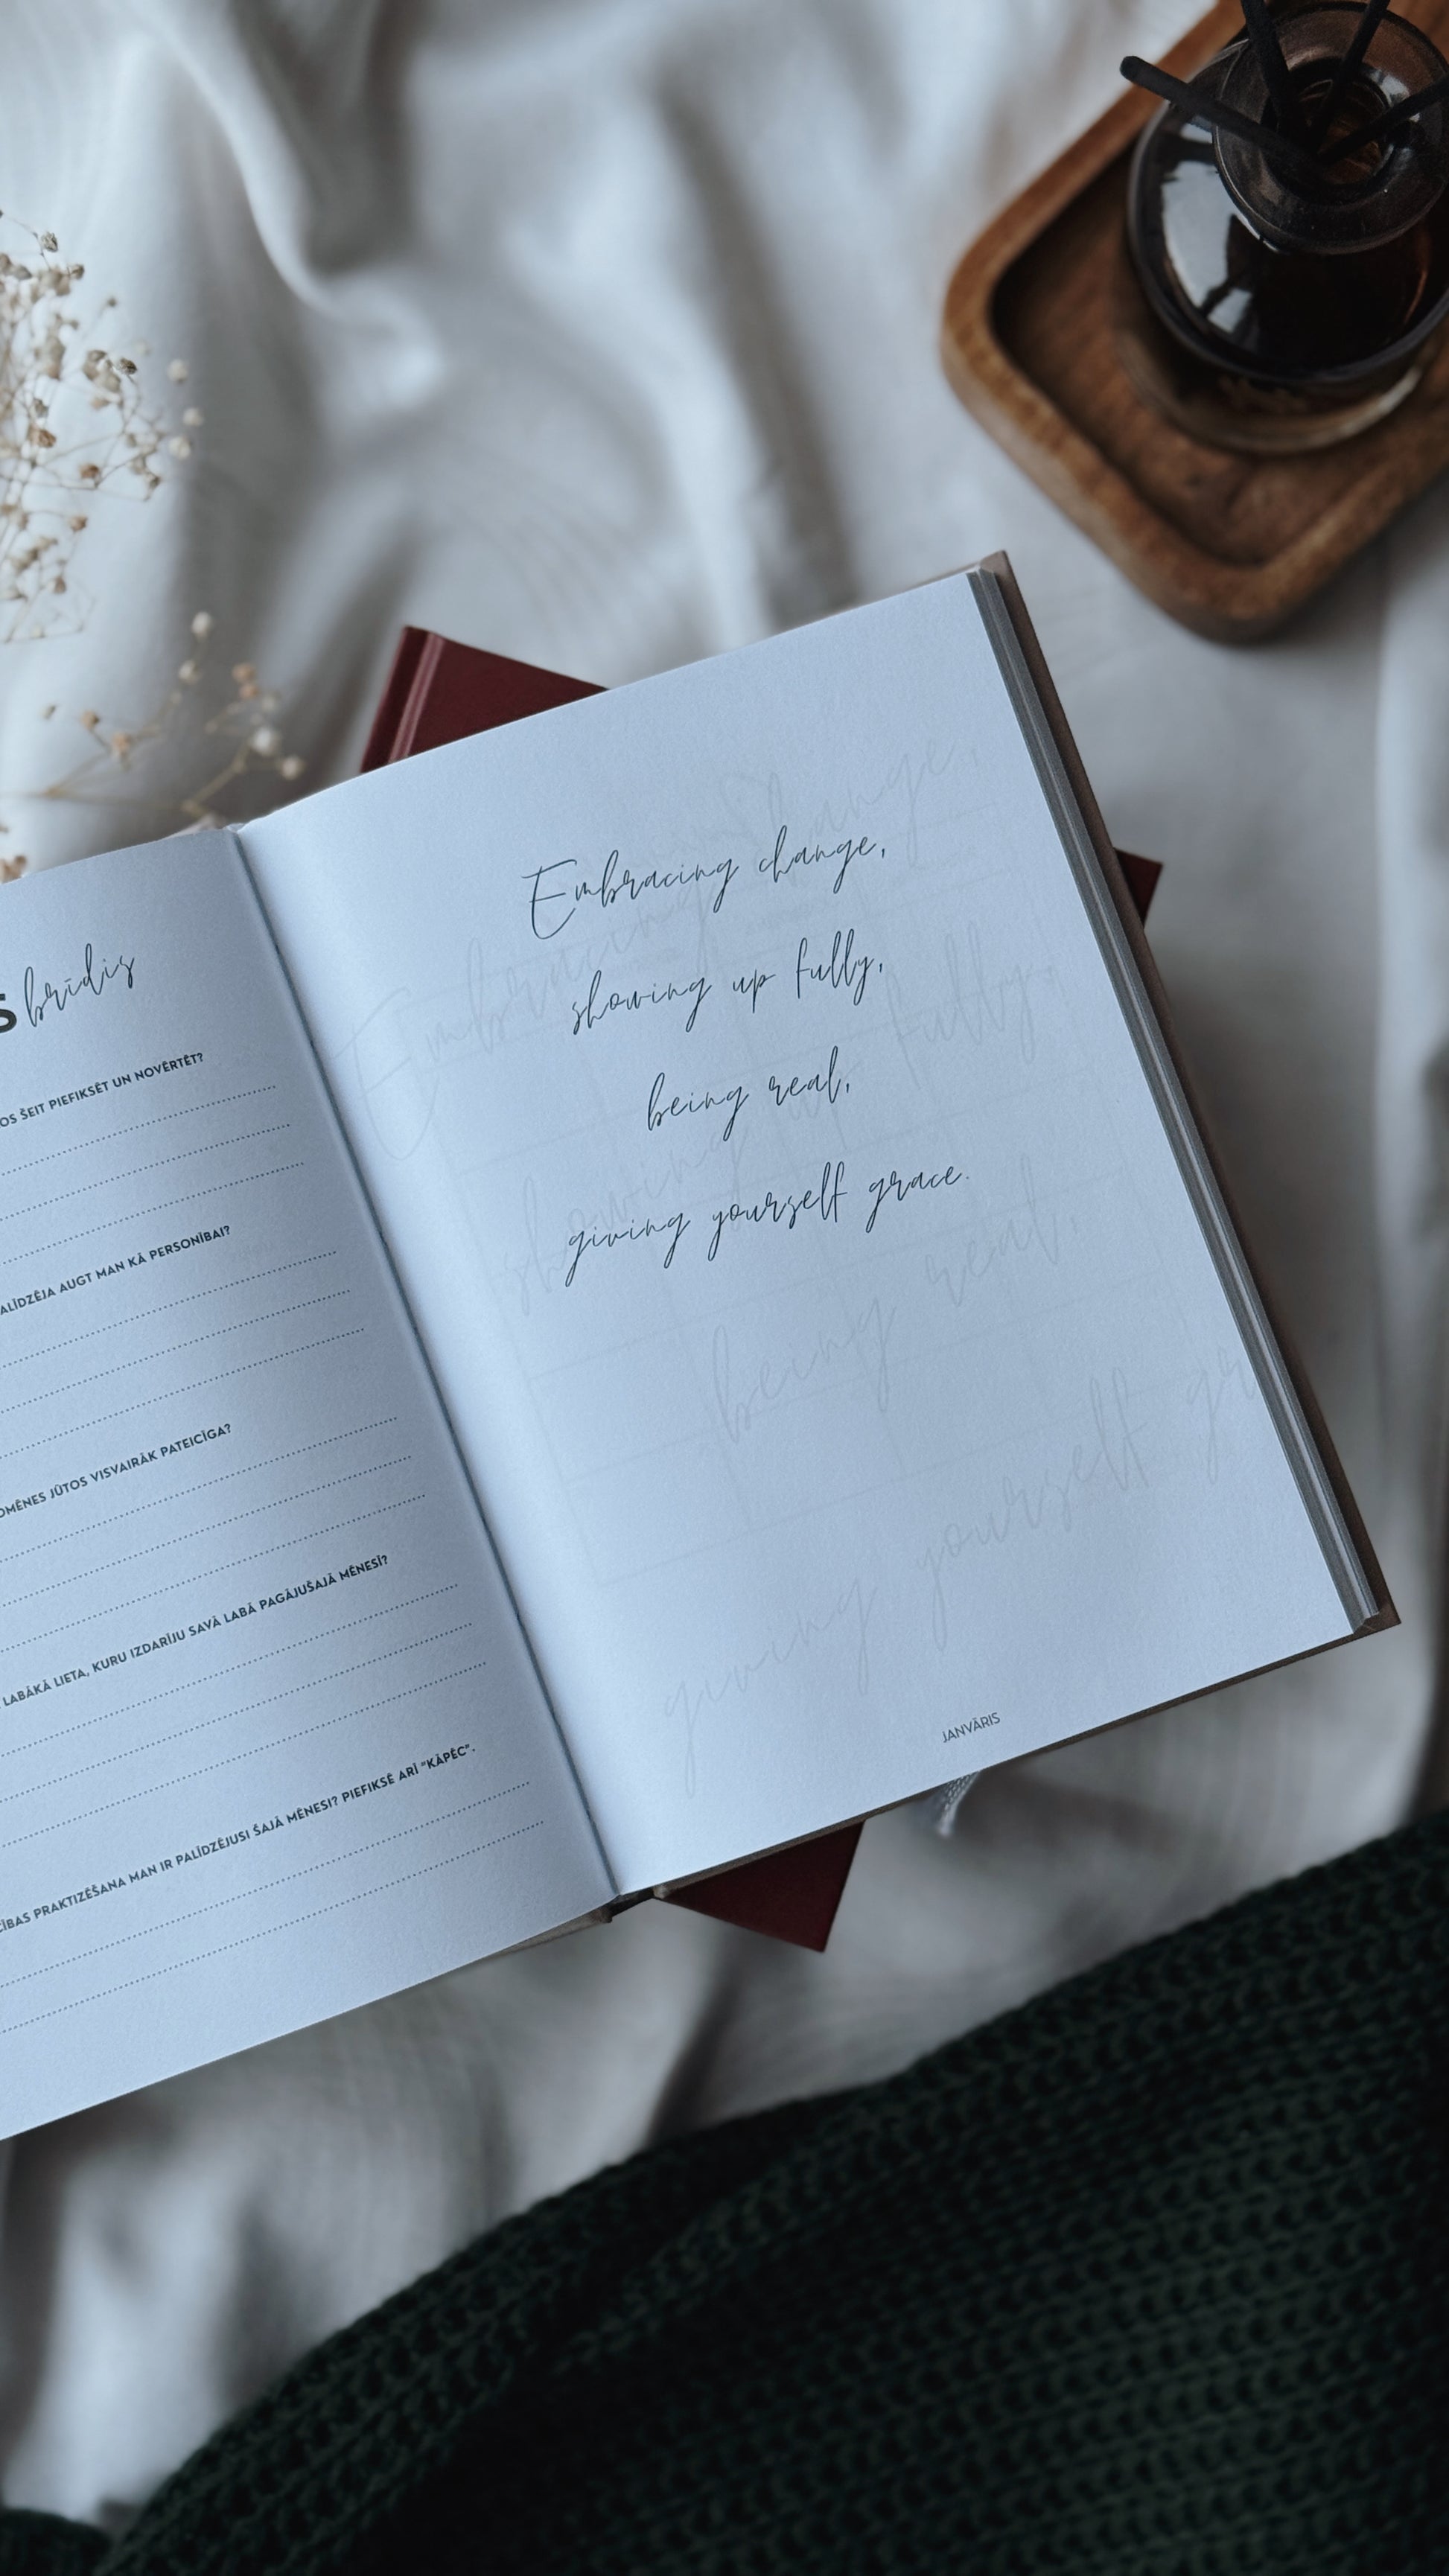 brīdis
ŠEIT PIEFIKSĒT UN NOVĒRTĒT?
AUGT MAN KĀ PERSONĪBAI?
JŪTOS VISVAIRĀK PATEICĪGA?
LABĀKĀ LIETA, KURU IZDARĪJU SAVĀ LABĀ PAGĀJUŠAJĀ MĒNESĪ?
PRAKTIZĒŠANA MAN IR PALĪDZĒJUSI ŠAJĀ MĒNESĪ? PIEFIKSĒ ARĪ "KĀPĒC".
Embracing change,
showing up fully,
being real,
giving yourself grace.
Embracing change,
showing up fully,
being real,
giving yourself
JANVĀRIS